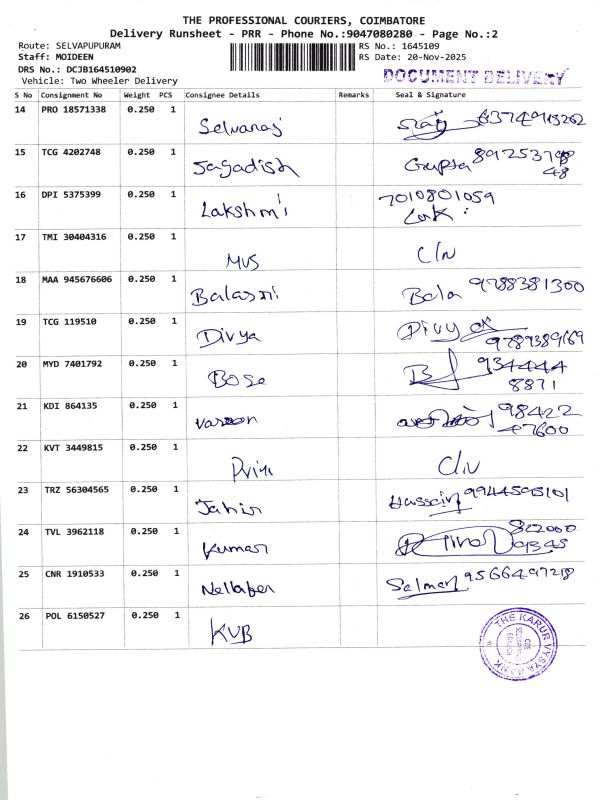 THE PROFESSIONAL COURIERS, COIMBATORE
Delivery Runsheet - PRR - Phone No.:9047080280 - Page No.:2
Route: SELVAPUPURAM RS No.: 1645109
Staff: MOIDEEN RS Date: 20-Nov-2025
DRS No.: DCJB164510902
Vehicle: Two Wheeler Delivery DOCUMENT DELIVERY
S No Consignment No Weight PCS Consignee Details Remarks Seal & Signature
14 PRO 18571338 0.250 1 Selvaraj
15 TCG 4202748 0.250 1 Jagadish Gupta
16 DPI 5375399 0.250 1 Lakshmi 7010801059
17 TMI 30404316 0.250 1 MVS
18 MAA 945676606 0.250 1 Bala 9788381300
19 TCG 119510 0.250 1 Divya Divya 9789389169
20 MYD 7401792 0.250 1 Bose 934444
8871
21 KDI 864135 0.250 1 98422
47600
22 KVT 3449815 0.250 1
23 TRZ 56304565 0.250 1 Hussain 9944595101
24 TVL 3962118 0.250 1 Kumar
25 CNR 1910533 0.250 1 Selman 9566497218
26 POL 6150527 0.250 1 KVB
THE KARUR VYSYA BANK